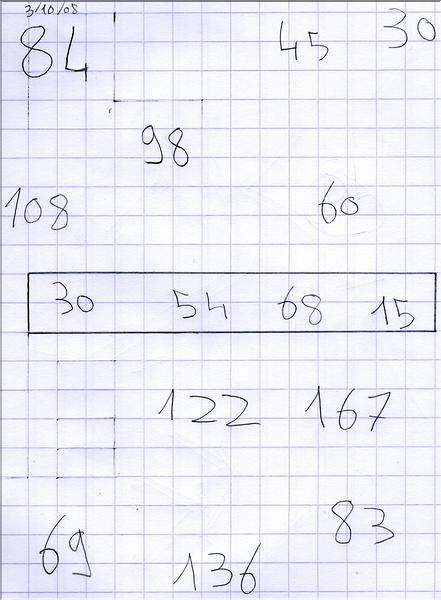 3/10/08
84 45 30
98
108 60
30 54 68 15
122 167
83
69 136